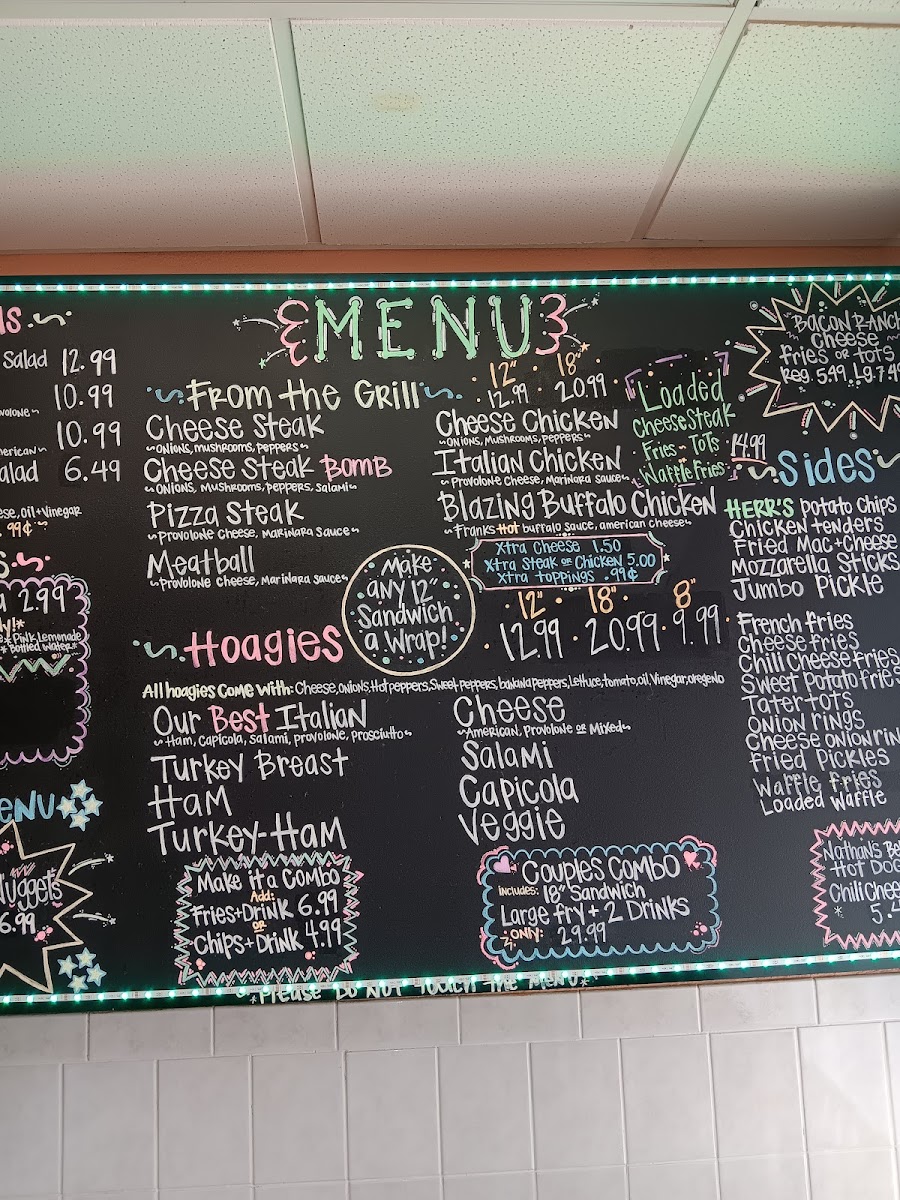 MENU
Salad 12.99
10.99
10.99
6.49
oil+Vinegar
.99¢
2.99
Pink Lemonade
*Bottled Water*
6.99
From the Grill
12" 18"
12.99 20.99
Cheese Steak
Onions, mushrooms, peppers
Cheese Steak Bomb
Onions, mushrooms, peppers, salami
Pizza Steak
Provolone cheese, marinara sauce
Meatball
Provolone cheese, marinara sauce
Cheese Chicken
Onions, mushrooms, peppers
Italian Chicken
Provolone cheese, marinara sauce
Blazing Buffalo Chicken
Franks Hot buffalo sauce, american cheese
Xtra Cheese 1.50
Xtra Steak or Chicken 5.00
Xtra toppings .99¢
Make
any 12"
Sandwich
a Wrap!
Loaded
Cheesesteak
Fries - Tots 14.99
Waffle Fries
Hoagies
12" 18" 8"
12.99 20.99 9.99
All hoagies come with: Cheese, onions, Hot peppers, Sweet peppers, banana peppers, lettuce, tomato, oil, Vinegar, oregeno
Our Best Italian
Ham, capicola, salami, provolone, prosciutto
Turkey Breast
Ham
Turkey-Ham
Cheese
American, Provolone or Mixed
Salami
Capicola
Veggie
Make it a Combo
Add:
Fries+Drink 6.99
or
Chips+Drink 4.99
Couples Combo
includes: 18" Sandwich
Large fry + 2 Drinks
Only: 29.99
Bacon Ranch
Cheese
fries or tots
Reg. 5.49
Sides
HERR'S Potato Chips
Chicken tenders
Fried Mac+Cheese
Mozzarella Sticks
Jumbo Pickle
French fries
Cheese fries
Chili Cheese fries
Sweet Potato fries
Tater tots
Onion rings
Cheese onion
Fried Pickles
Waffle fries
Loaded Waffle
Nathan's
Hot Dog
Chili
*Please Do Not Touch the Menu*